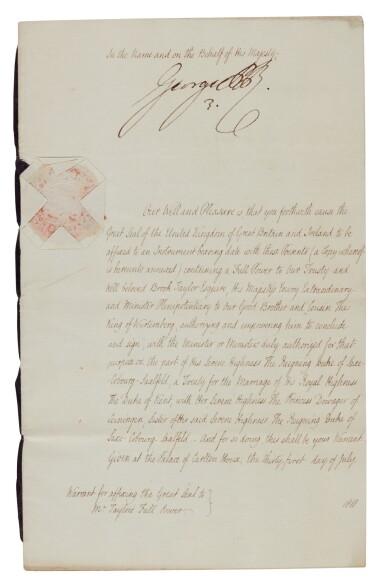 In the Name and on the Behalf of His Majesty.
George PR.
Our Will and Pleasure is that you forthwith cause the
Great Seal of the United Kingdom of Great Britain and Ireland to be
affixed to an Instrument bearing date with these Presents (a Copy whereof
is hereunto annexed) containing a Full Power to Our Trusty and
well beloved Brook Taylor Esquire, His Majesty's Envoy Extraordinary
and Minister Plenipotentiary to Our Good Brother and Cousin The
King of Wirtemberg, authorizing and empowering him to conclude
and sign, with the Minister or Ministers duly authorized for that
purpose on the part of His Serene Highness The Reigning Duke of Saxe-
Cobourg-Saalfeld, a Treaty for the Marriage of His Royal Highness
The Duke of Kent with Her Serene Highness The Princess Dowager of
Leiningen Sister of His said Serene Highness The Reigning Duke of
Saxe-Cobourg-Saalfeld. And for so doing this shall be your Warrant.
Given at the Palace of Carlton House, the Thirty first day of July,
1818
Warrant for affixing the Great Seal to
Mr. Taylor's Full Power.